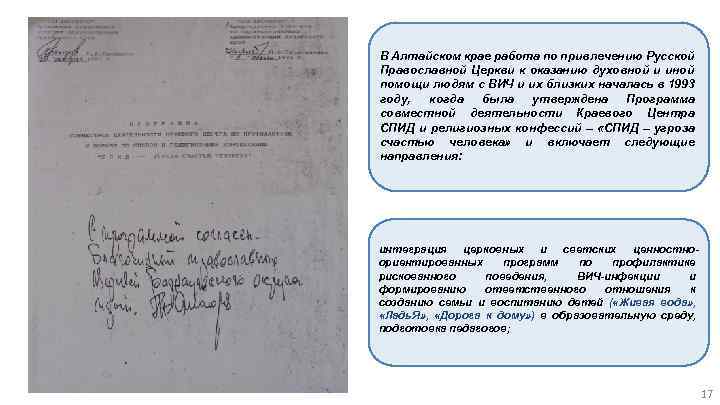 ПРОГРАММА
СОВМЕСТНОЙ ДЕЯТЕЛЬНОСТИ КРАЕВОГО ЦЕНТРА ПО ПРОФИЛАКТИКЕ
И БОРЬБЕ СО СПИДОМ И РЕЛИГИОЗНЫМИ КОНФЕССИЯМИ
"СПИД - УГРОЗА СЧАСТЬЮ ЧЕЛОВЕКА"
С программой согласен.
Благочинный православных
Церквей Барнаульского округа
прот.
В Алтайском крае работа по привлечению Русской
Православной Церкви к оказанию духовной и иной
помощи людям с ВИЧ и их близких началась в 1993
году, когда была утверждена Программа
совместной деятельности Краевого Центра
СПИД и религиозных конфессий – «СПИД – угроза
счастью человека» и включает следующие
направления:
интеграция церковных и светских ценностно-
ориентированных программ по профилактике
рискованного поведения, ВИЧ-инфекции и
формированию ответственного отношения к
созданию семьи и воспитанию детей («Живая вода»,
«ЛадьЯ», «Дорога к дому») в образовательную среду,
подготовка педагогов;
17